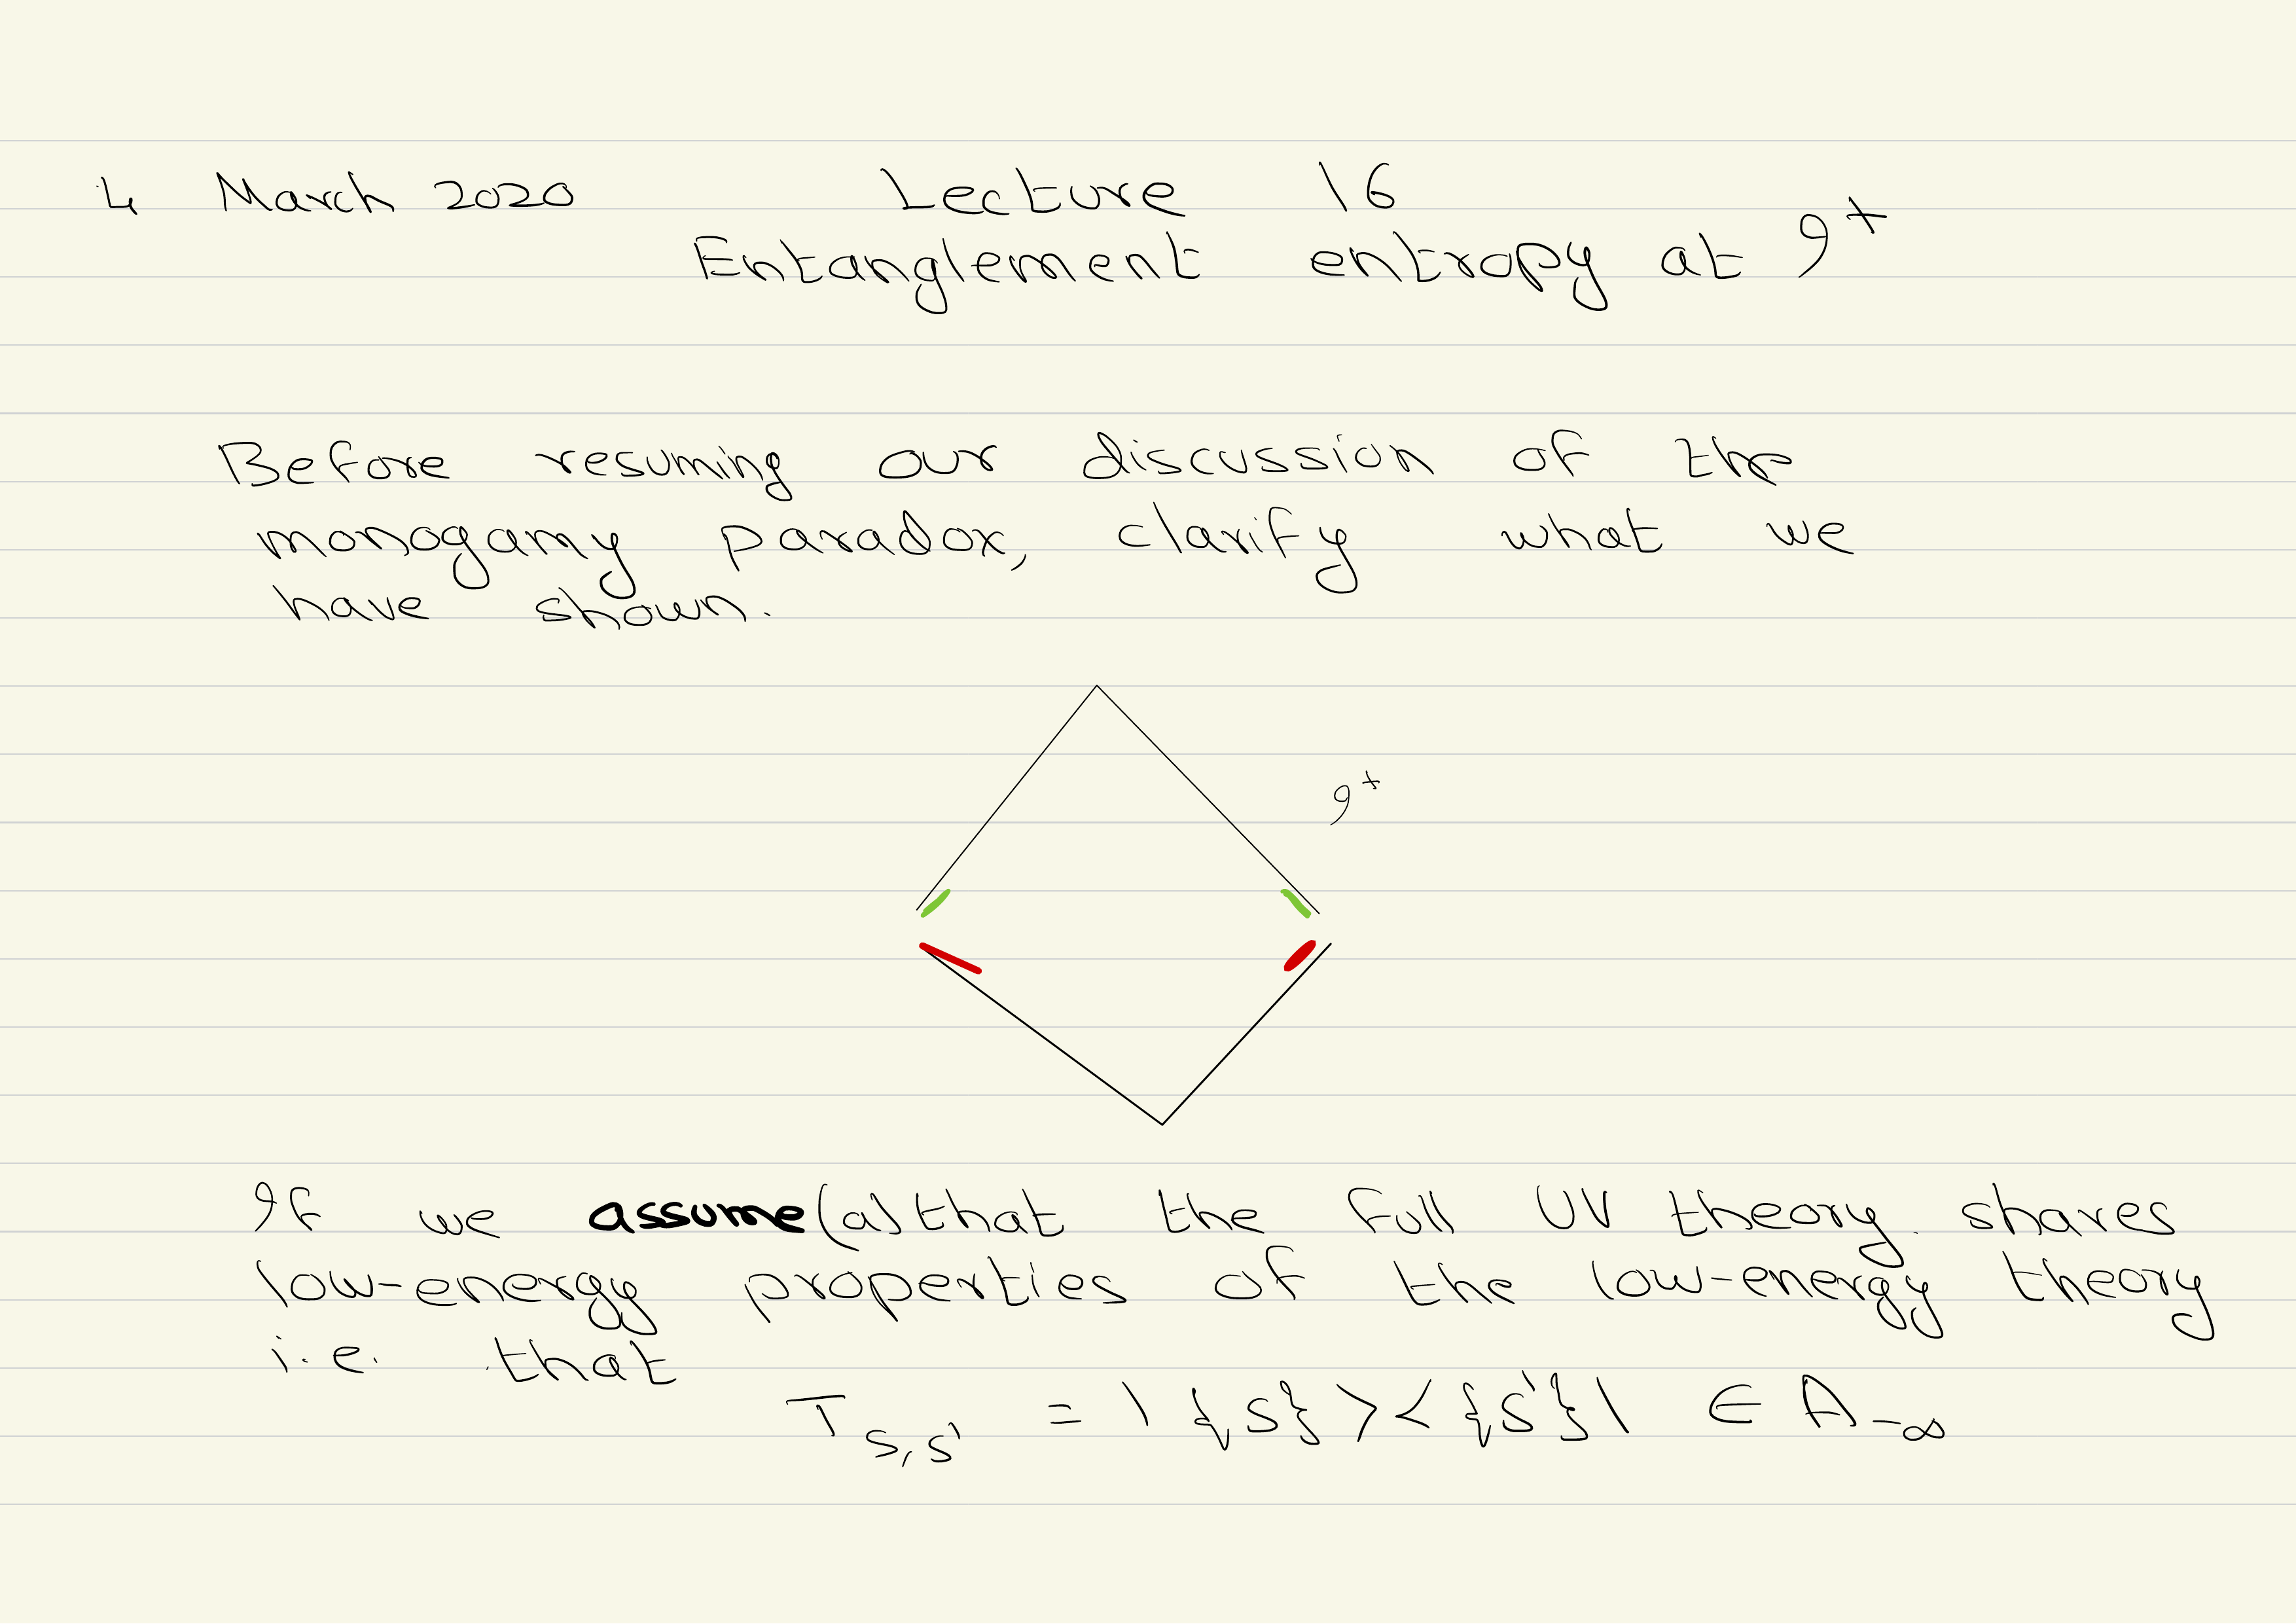 4 March 2020 Lecture 16
Entanglement entropy at I⁺
Before resuming our discussion of the
monogamy paradox, clarify what we
have shown.
I⁺
If we assume (a) that the full UV theory shares
low-energy properties of the low-energy theory
i.e. that
T_{s,s'} = |{s}><{s'}| ∈ A_{-∞}